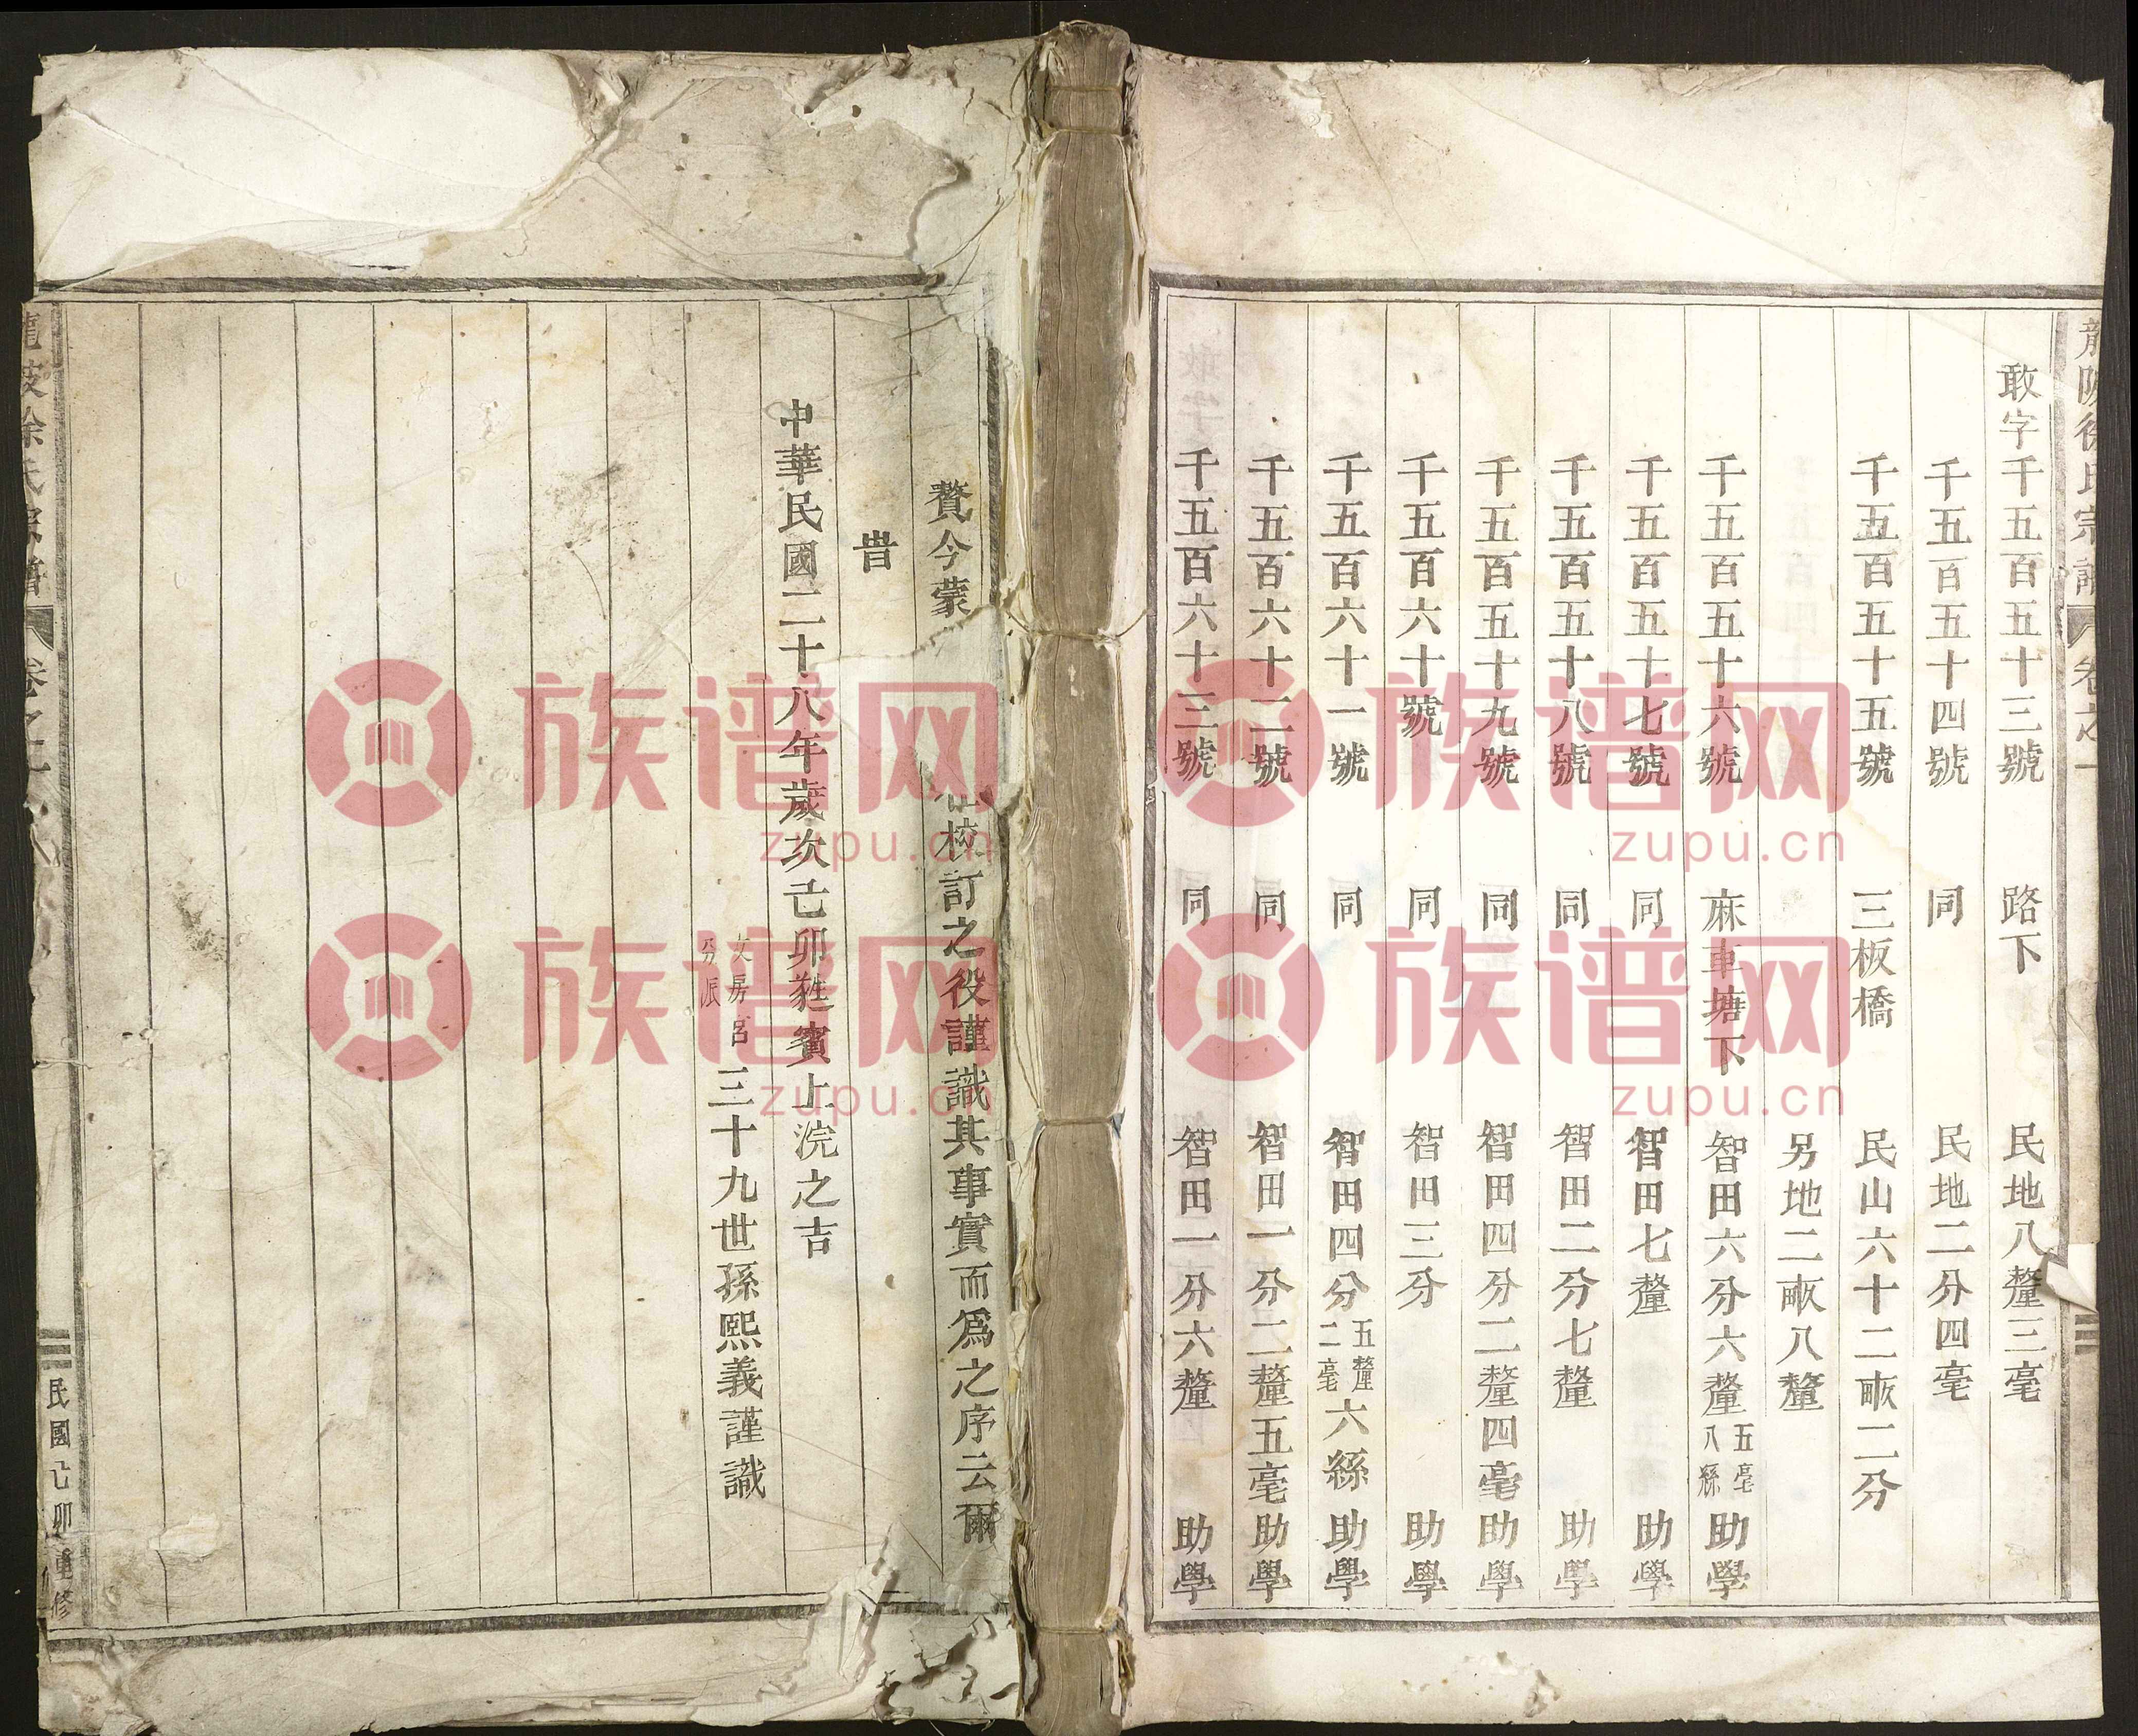 徐氏宗譜
卷之一
敢字千五百五十三號 路下 民地八釐三毫
千五百五十四號 同 民地二分四毫
千五百五十五號 三板橋 民山六十二畝二分
另地二畝八釐
千五百五十六號 麻車塘下 智田六分六釐五毫八絲 助學
千五百五十七號 同 智田七釐 助學
千五百五十八號 同 智田二分七釐 助學
千五百五十九號 同 智田四分二釐四毫 助學
千五百六十號 同 智田三分 助學
千五百六十一號 同 智田四分五釐二毫六絲 助學
千五百六十二號 同 智田一分二釐五毫 助學
千五百六十三號 同 智田一分六釐 助學
贅今蒙
校訂之役謹識其事實而爲之序云爾
旹
中華民國二十八年歲次己卯蕤賓上浣之吉
文房宮分派 三十九世孫熙義謹識
徐氏宗譜
卷之
民國己卯重修
族谱网
zupu.cn
族谱网
zupu.cn
族谱网
zupu.cn
族谱网
zupu.cn